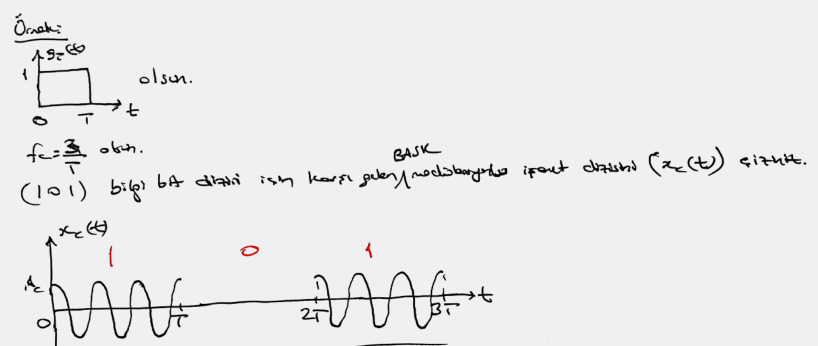 Örnek:
g_T(t)
1
olsun.
0 T t
f_c = 3/T olsun.
BASK
(101) bilgi bit dizisi için karşı gelen modülasyonlu işaret dizisini (x_c(t)) çiziniz.
x_c(t)
1 0 1
A_c
0 T 2T 3T t